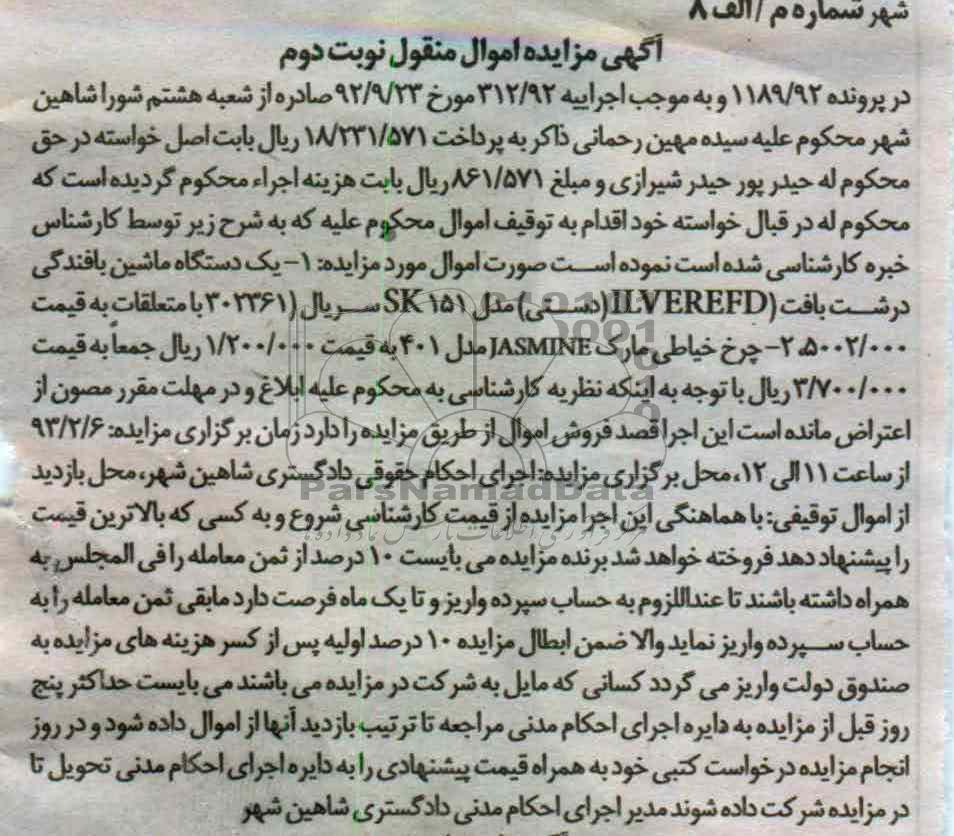 شهر شماره م /الف ۸
آگهی مزایده اموال منقول نوبت دوم
در پرونده ۱۱۸۹/۹۲ و به موجب اجراییه ۳۱۲/۹۲ مورخ ۹۲/۹/۲۳ صادره از شعبه هشتم شورا شاهین
شهر محکوم علیه سیده مهین رحمانی ذاکر به پرداخت ۱۸/۲۳۱/۵۷۱ ریال بابت اصل خواسته در حق
محکوم له حیدر پور حیدر شیرازی و مبلغ ۸۶۱/۵۷۱ ریال بابت هزینه اجراء محکوم گردیده است که
محکوم له در قبال خواسته خود اقدام به توقیف اموال محکوم علیه که به شرح زیر توسط کارشناس
خبره کارشناسی شده است نموده است صورت اموال مورد مزایده: ۱- یک دستگاه ماشین بافندگی
درشت بافت (ILVEREFD(دستی) مدل SK ۱۵۱ سریال (۳۰۲۳۶۱ با متعلقات به قیمت
۲،۵۰۰۲/۰۰۰- چرخ خیاطی مارک JASMINE مدل ۴۰۱ به قیمت ۱/۲۰۰/۰۰۰ ریال جمعاً به قیمت
۳/۷۰۰/۰۰۰ ریال با توجه به اینکه نظریه کارشناسی به محکوم علیه ابلاغ و در مهلت مقرر مصون از
اعتراض مانده است این اجرا قصد فروش اموال از طریق مزایده را دارد زمان برگزاری مزایده: ۹۳/۲/۶
از ساعت ۱۱ الی ۱۲، محل برگزاری مزایده: اجرای احکام حقوقی دادگستری شاهین شهر، محل بازدید
ParsNamadData
از اموال توقیفی: با هماهنگی این اجرا مزایده از قیمت کارشناسی شروع و به کسی که بالاترین قیمت
را پیشنهاد دهد فروخته خواهد شد برنده مزایده می بایست ۱۰ درصد از ثمن معامله را فی المجلس به
همراه داشته باشند تا عنداللزوم به حساب سپرده واریز و تا یک ماه فرصت دارد مابقی ثمن معامله را به
حساب سپرده واریز نماید والا ضمن ابطال مزایده ۱۰ درصد اولیه پس از کسر هزینه های مزایده به
صندوق دولت واریز می گردد کسانی که مایل به شرکت در مزایده می باشند می بایست حداکثر پنج
روز قبل از مزایده به دایره اجرای احکام مدنی مراجعه تا ترتیب بازدید آنها از اموال داده شود و در روز
انجام مزایده درخواست کتبی خود به همراه قیمت پیشنهادی را به دایره اجرای احکام مدنی تحویل تا
در مزایده شرکت داده شوند مدیر اجرای احکام مدنی دادگستری شاهین شهر